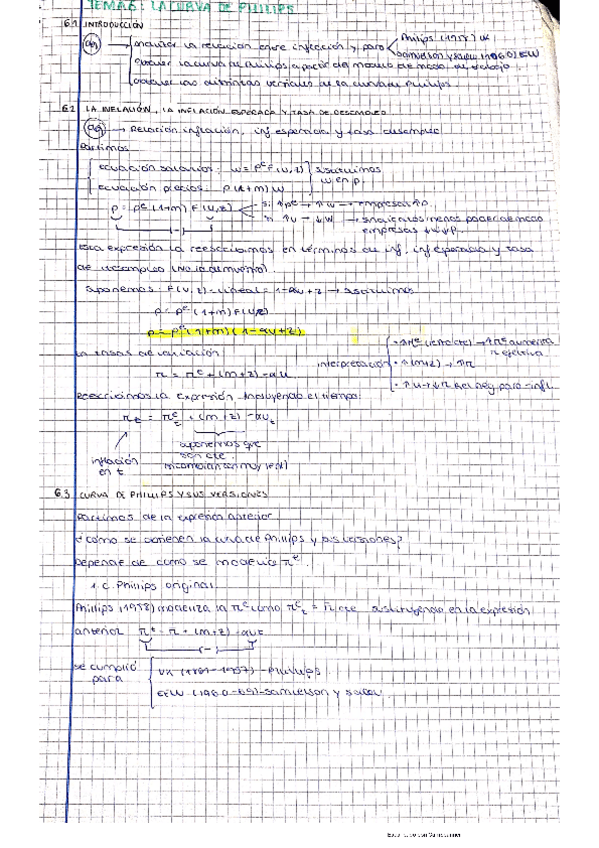 TEMA 6: LA CURVA DE PHILLIPS
6.1 INTRODUCCIÓN
analizar la relación entre inflación y paro
Phillips (1958) UK
Samuelson y Solow (1960) EEUU
obtener la curva de Phillips a partir del modelo de mdo. de trabajo
obtener las distintas versiones de la curva de Phillips
6.2 LA INFLACIÓN, LA INFLACIÓN ESPERADA Y TASA DE DESEMPLEO
→ Relación inflación, inf esperada y tasa desempleo
Partimos
ecuación salarios: w = Pᵉ F(u,z)
ecuación precios: P(1+m) w
sustituimos
w en p
P = Pᵉ (1+m) F(u,z)
si ↑pᵉ → ↑w → empresas ↑p
si ↑u → ↓w →
menos poder de nego
empresas ↓w ↓p
Esta expresión la reescribimos en términos de inf, inf esperada y tasa
de desempleo
Suponemos: F(u,z) - lineal = 1-αu+z → sustituimos
P = Pᵉ (1+m) F(u,z)
P = Pᵉ (1+m) (1-αu+z)
en tasas de variación
π = πᵉ + (m+z) - αu
interpretación
· ↑πᵉ → ↑π aumenta
π efectiva
· ↑(m+z) → ↑π
· ↑u → ↓π Rel neg paro-infl.
Reescribimos la expresión incluyendo el tiempo:
πt = πᵉt + (m+z) - αut
inflación
en t
suponemos que
son cte
6.3 CURVA DE PHILLIPS Y SUS VERSIONES
Partimos de la expresión anterior
¿Cómo se obtienen la curva de Phillips y sus versiones?
Depende de como se modelice πᵉ
1. C. Phillips original
Phillips (1958) modeliza la πᵉ como πᵉt = π̄ cte sustituyendo en la expresión
anterior πt = π̄ + (m+z) - αut
(-)
se cumplió
para
UK (1861-1957) - Phillips
EEUU (1960-69) - Samuelson y Solow